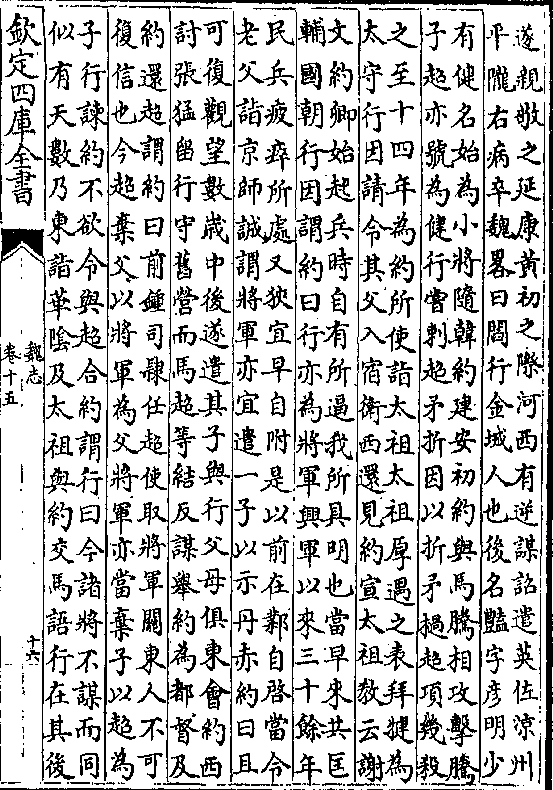 遂親敬之延康黃初之際河西有逆謀詔遣英佐涼州
平隴右病卒魏畧曰閻行金城人也後名豔字彦明少
有健名始為小將隨韓約建安初約與馬騰相攻擊騰
子超亦號為健行嘗刺超矛折因以折矛撾超項幾殺
之至十四年為約所使詣太祖太祖厚遇之表拜犍為
太守行因請令其父入宿衛西還見約宣太祖教云謝
文約卿始起兵時自有所逼我所具明也當早來共匡
輔國朝行因謂約曰行亦為將軍興軍以來三十餘年
民兵疲瘁所處又狹宜早自附是以前在鄴自啓當令
老父詣京師誠謂將軍亦宜遣一子以示丹赤約曰且
可復觀望數歲中後遂遣其子與行父母俱東會約西
討張猛留行守舊營而馬超等結反謀舉約為都督及
約還超謂約曰前鍾司𨽻任超使取將軍關東人不可
復信也今超棄父以將軍為父將軍亦當棄子以超為
子行諫約不欲令與超合約謂行曰今諸將不謀而同
似有天數乃東詣華陰及太祖與約交馬語行在其後
欽定四庫全書
魏志
卷十五
十六